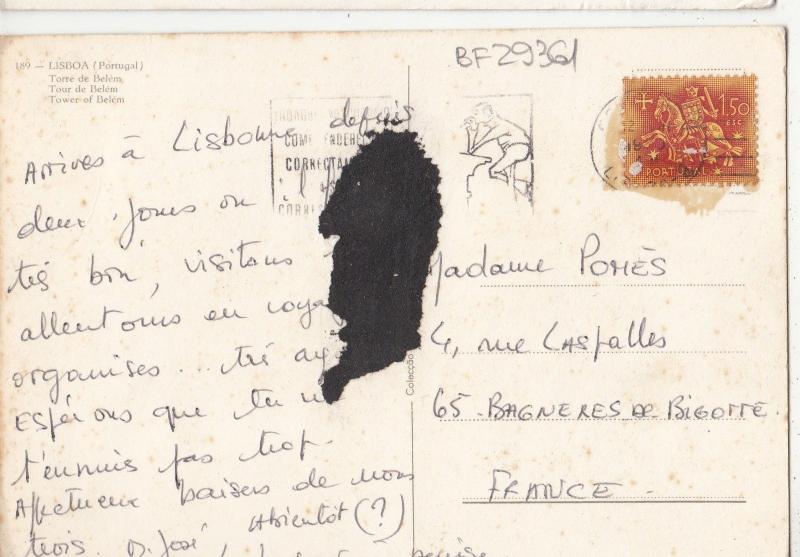 BF29361
189 — LISBOA (Portugal)
Torre de Belém
Tour de Belém
Tower of Belém
1$50
ESC
PORTUGAL
CORRECTAM
Arrives à Lisbonne depuis
deux jours on
tés bon, visitons
allentours en voya
organises... tré
espérons que tu n
t'ennuis pas trop.
Affetueux baisers de nous
trois. D. José, Abientot (?)
Colecção
Madame POMÈS
4, rue LASPALLES
65 - BAGNERES DE BIGORRE
FRANCE -